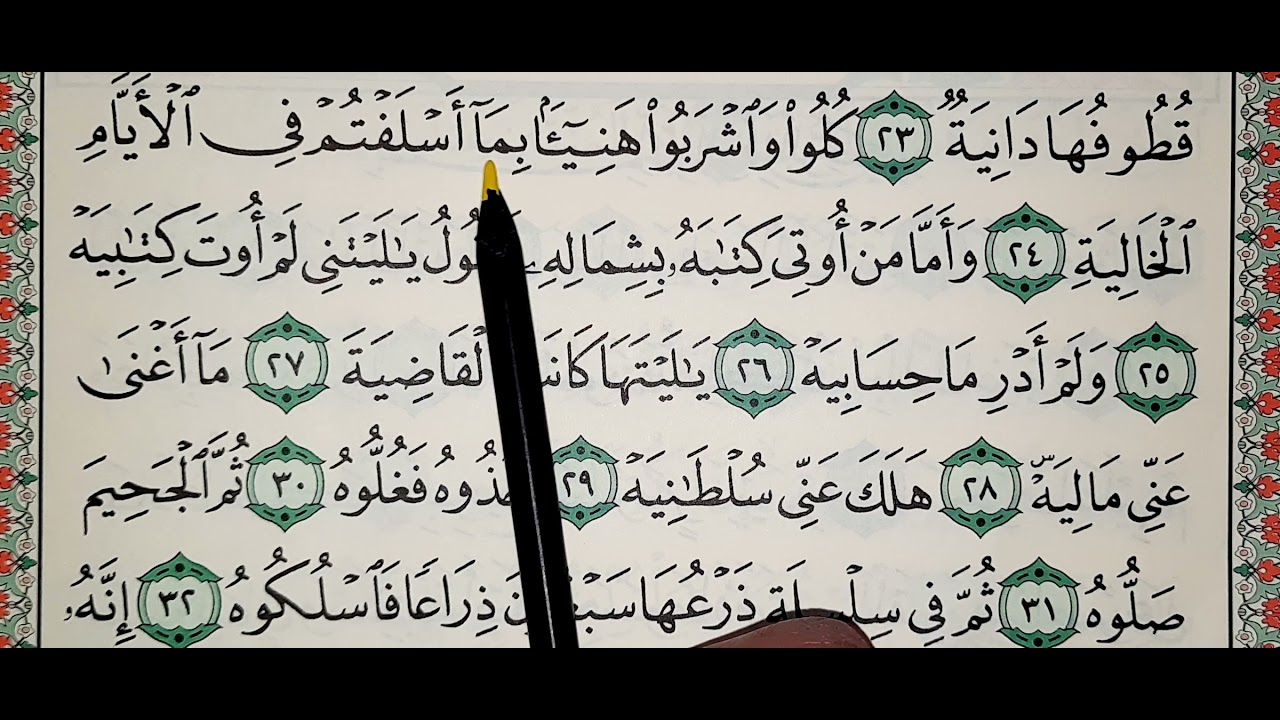 قُطُوفُهَا دَانِيَةٌ ٢٣ كُلُوا۟ وَٱشْرَبُوا۟ هَنِيٓـَٔۢا بِمَآ أَسْلَفْتُمْ فِى ٱلْأَيَّامِ
ٱلْخَالِيَةِ ٢٤ وَأَمَّا مَنْ أُوتِىَ كِتَـٰبَهُۥ بِشِمَالِهِۦ يَـٰلَيْتَنِى لَمْ أُوتَ كِتَـٰبِيَهْ
٢٥ وَلَمْ أَدْرِ مَا حِسَابِيَهْ ٢٦ يَـٰلَيْتَهَا ٱلْقَاضِيَةَ ٢٧ مَآ أَغْنَىٰ
عَنِّى مَالِيَهْ ۜ ٢٨ هَلَكَ عَنِّى سُلْطَـٰنِيَهْ ٢٩ فَغُلُّوهُ ٣٠ ثُمَّ ٱلْجَحِيمَ
صَلُّوهُ ٣١ ثُمَّ فِى سِلْسِلَةٍ ذَرْعُهَا ذِرَاعًا فَٱسْلُكُوهُ ٣٢ إِنَّهُۥ